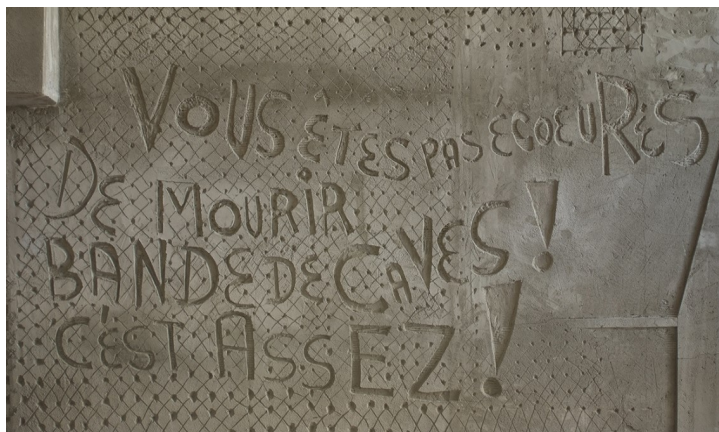 VOUS ÊTES PAS ÉCOEURÉS
DE MOURIR
BANDE DE CAVES !
C'EST ASSEZ !